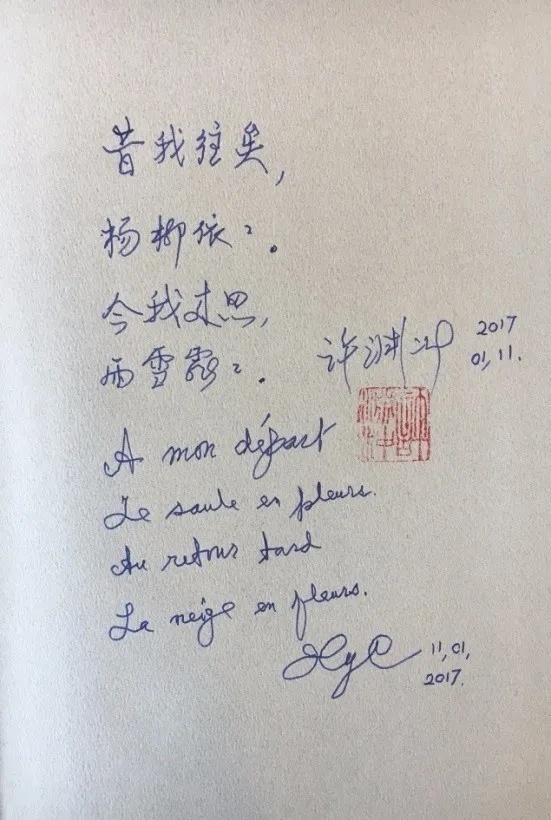 昔我往矣,
杨柳依々.
今我来思,
雨雪霏々.
许渊冲 2017
01,11.
A mon départ
Le saule en pleurs.
Au retour tard
La neige en fleurs.
XyC 11,01,
2017.